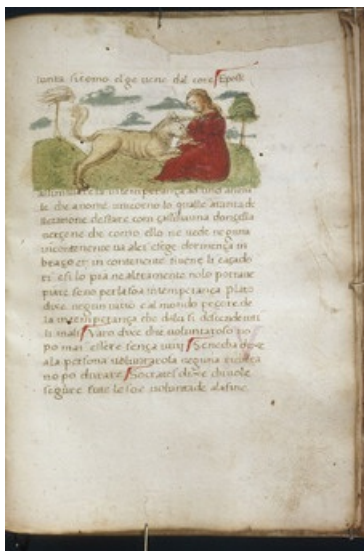 lunta si como el ge vene dal core E posse
asimiliare la intemperança ad uno anima
le che a nome unicorno lo qualle a tanta de
letatione de stare com qualchuna donzella
vergene che como ello ne vede neguna
incontenente va a lei e se ge dormença in
braço et in contenente li vene li caçado
ri e si lo pia ne altramente nolo porrave
piare se no per la soa intemperança Plato
dixe negun vitio e al mondo peçore de
la intemperança che da lu si descendeno
li mali Varo dixe che voluntaroso no
po mai essere sença vitii Senecha dixe
a la persona voluntarosa neguna richeça
no po durare Socrates dixe chi vole
segure tute le soe voluntade ala fine